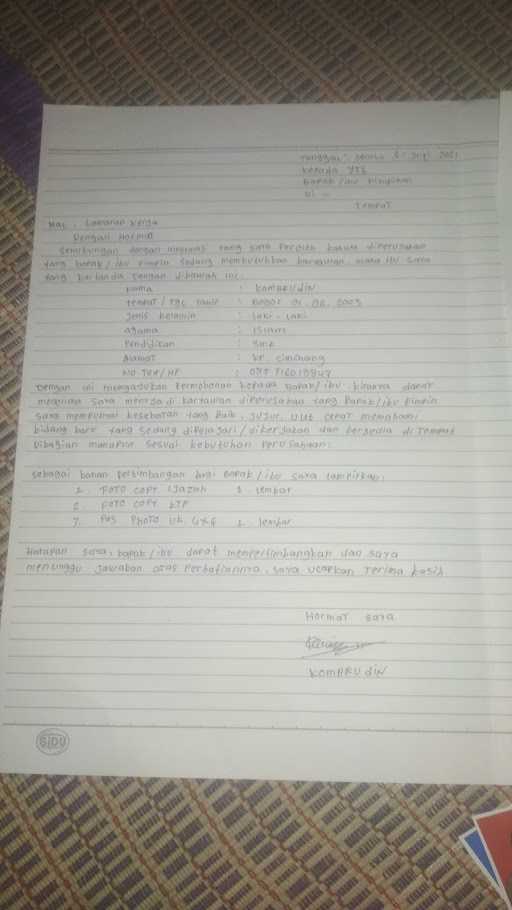 Tanggal : 2021
Kepada YTH
Bapak / ibu Pimpinan
Di -
Tempat
Hal : Lamaran kerja
Dengan Hormat
Sehubungan dengan yang saya Peroleh bahwa diperusahan
yang bapak / ibu Pimpin sedang membutuhkan karyawan, maka itu saya
yang bertanda Tangan dibawah ini:
nama : KomARUdiN
tempat / Tgl lahir : Bogor 01. 08. 2003
Jenis kelamin : laki - laki
agama : islam
Pendidikan : Smk
Alamat : KP. cinangang
NO TLP / HP :
Dengan ini mengajukan Permohonan kepada Bapak / ibu kiranya dapat
menerima saya menjadi karyawan diperusahan yang Bapak / ibu Pimpin
saya mempunyai kesehatan yang baik, Jujur, ulet cepat memahami
bidang baru yang sedang dipelajari / dikerjakan dan bersedia di Tempat
Dibagian manapun sesuai kebutuhan Perusahaan.
Sebagai bahan Pertimbangan bagi Bapak / ibu saya lampirkan:
1. FOTO COPY IJazah 1 lembar
2. FOTO COPY KTP
7. Pas PHOTO UK. 4x6 2 lembar
Harapan saya, bapak / ibu dapat mempertimbangkan dan saya
menunggu Jawaban atas Perhatiannya, saya ucapkan Terima kasih
HORMAT saya
KomARUdiN
SIDU